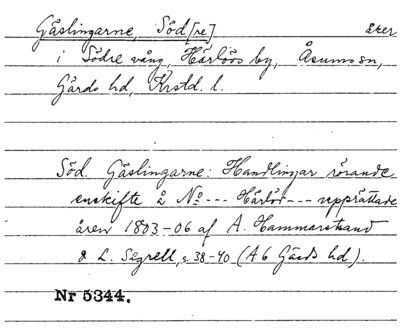 Gäslingarne, Söd[re] åker
i Södre vång, Härlövs by, Åsums sn,
Gärds hd, Krstd. l.
Söd. Gäslingarne: Handlingar rörande
enskifte å No --- Härlöv --- upprättade
åren 1803-06 af A. Hammarstrand
& L. Segrell, s. 38-40 (A 6 Gärds hd).
Nr 5344.